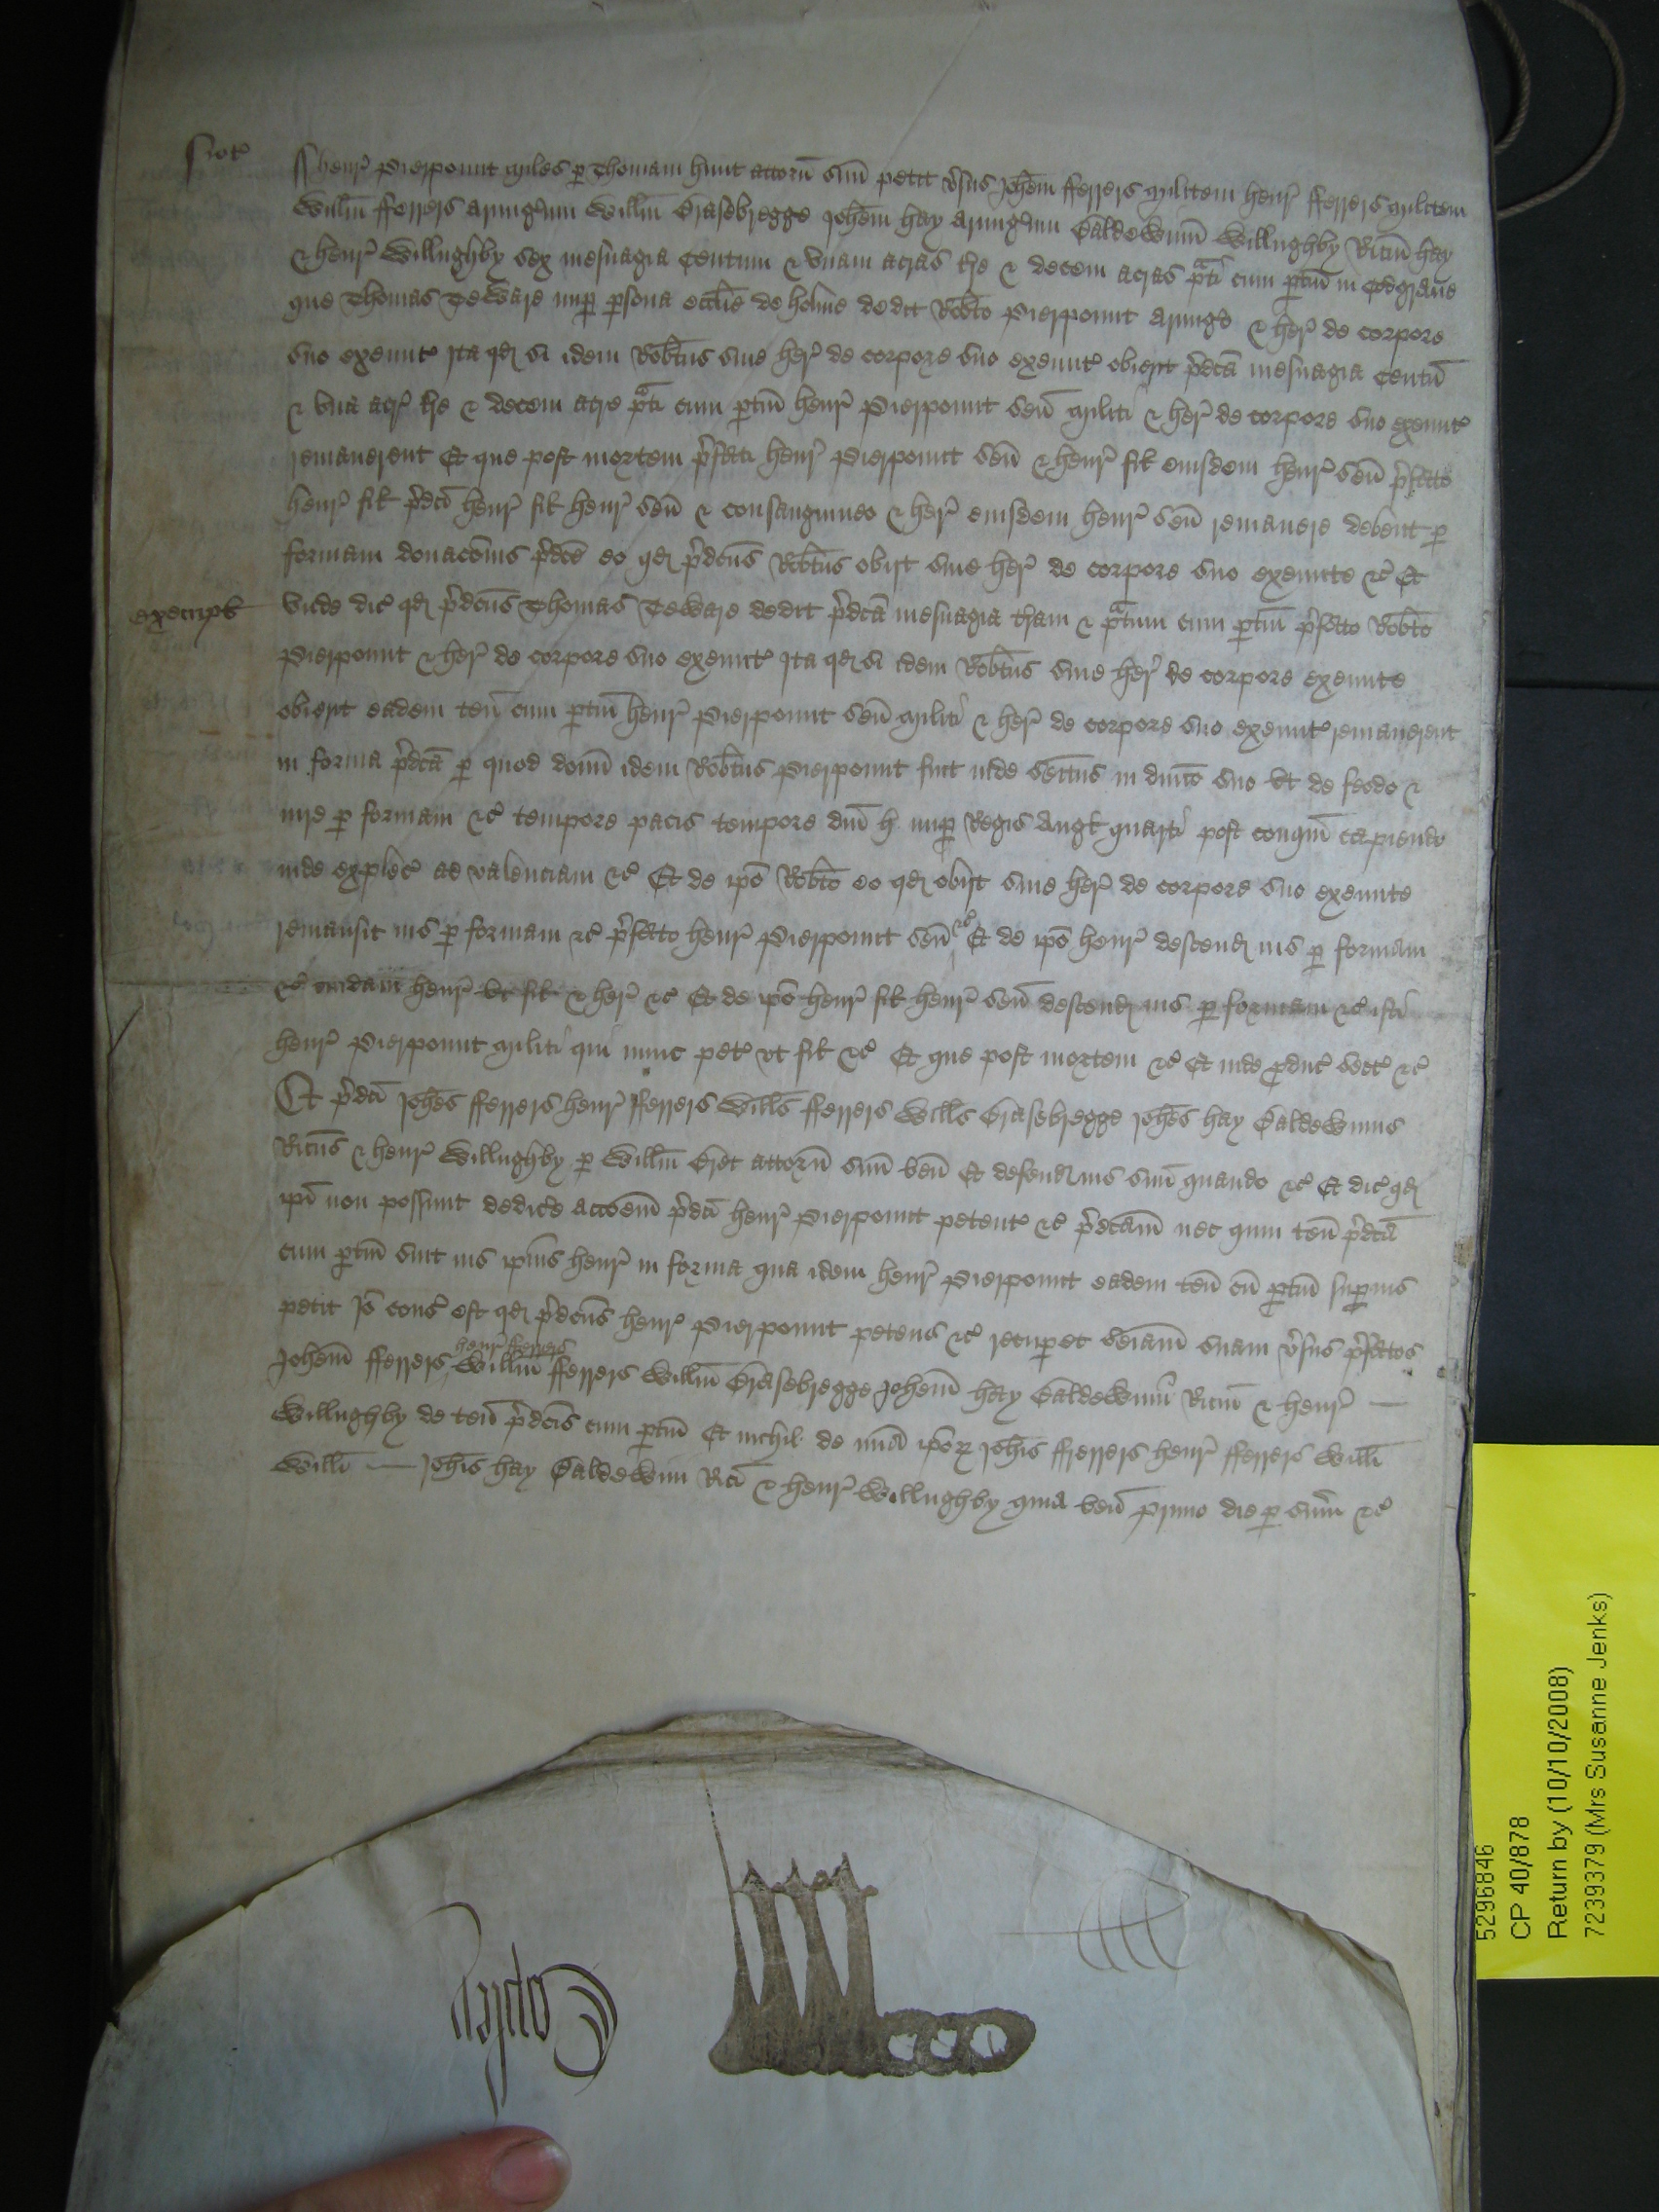 Not'
Henr' Pierpount miles p Thomam Hunt attorn suu petit v'sus Johem Fferrers militem Henr' Fferrers militem
Willm Fferrers armig'um Willm Brasebregge Johem Hay armig'um Baldewinu Willughby Ricm Hay
& Henr' Willughby sex mesuagia centum & vnam acras tre & decem acras prati cum ptin in Codgrave
que Thomas Teware nup psona ecclie de Holme dedit Robto Pierpount armig'o & her' de corpore
suo exeunt' Ita qd si idem Robtus sine her' de corpore suo exeunt' obierit pdca mesuagia centu
& vna acr' tre & decem acre prati cum ptin Henr' Pierpount sen militi & her' de corpore suo exeunt'
remanerent Et que post mortem p'fati Henr' Pierpount sen & Henr' fil eiusdem Henr' sen p'fato
Henr' fil p'dci Henr' fil Henr' sen & consanguineo & her' eiusdem Henr' sen remanere debent p
formam donacois p'dce eo qd p'dcus Robtus obijt sine her' de corpore suo exeunte &c' Et
execript
vnde dic' qd p'dcus Thomas Teware dedit p'dca mesuagia tram & pratum cum ptin p'fato Robto
Pierpount & her' de corpore suo exeunt' Ita qd si idem Robtus sine her' de corpore exeunte
obierit eadem ten cum ptin Henr' Pierpount sen militi & her' de corpore suo exeunt' remanerent
in forma p'dca p quod donu idem Robtus Pierpount fuit inde seitus in dnico suo vt de feodo &
iure p formam &c' tempore pacis tempore dni H nup Regis Angl quarti post conqm capiendo
inde explec' ad valenciam &c' Et de ipo Robto eo qd obijt sine her' de corpore suo exeunte
remansit ius p formam &c' p'fato Henr' Pierpount sen &c' Et de ipo Henr' descend ius p formam
&c' cuidam Henr' vt fil & her' &c' Et de ipo Henr' fil Henr' sen descend ius p formam &c' isti
Henr' Pierpount militi qui nunc pet' vt fil &c' Et que post mortem &c' Et inde pduc' sect' &c'
Et p'dci Johes Fferrers Henr' Fferrers Wills Fferrers Wills Brasebregge Johes Hay Baldewinus
Ricus & Henr' Willughby p Willm Bret attorn suu ven Et defend ius suu quando &c' Et dic' qd
ipi non possunt dedic'e accoem p'dci Henr' Pierpount petent' &c' p'dcam nec quin ten p'dca
cum ptin sint ius ipius Henr' in forma qua idem Henr' Pierpount eadem ten cu ptin supius
petit Io cons' est qd p'dcus Henr' Pierpount petens &c' recupet seiam suam v'sus p'fatos
Henr' Fferrers
Johem Fferrers Willm Fferrers Willm Brasebregge Johem Hay Baldewinu Ricm & Henr' —
Willughby de ten p'dcis cum ptin Et nichil de mia ipor Johis Fferrers Henr' Fferrers Willi
Willi — Johis Hay Baldewini Rici & Henr' Willughby quia ven primo die p sum &c'
5296846
CP 40/878
Return by (10/10/2008)
7239379 (Mrs Susanne Jenks)